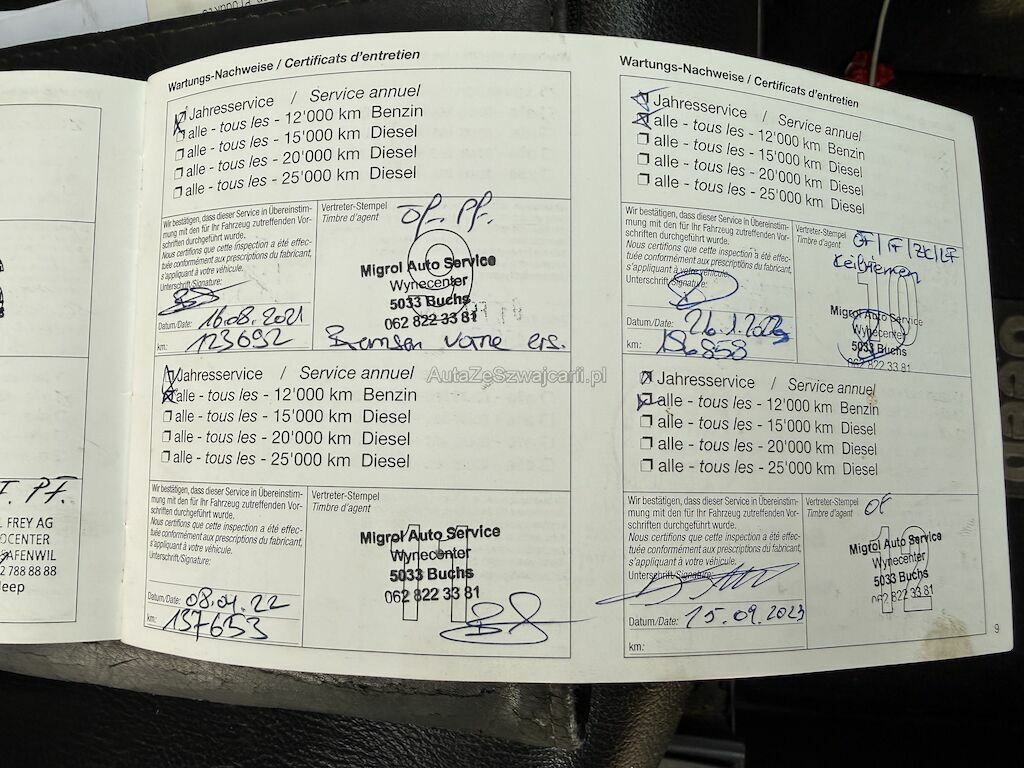 Wartungs-Nachweise / Certificats d'entretien
Jahresservice / Service annuel
alle - tous les - 12'000 km Benzin
alle - tous les - 15'000 km Diesel
alle - tous les - 20'000 km Diesel
alle - tous les - 25'000 km Diesel
Wir bestätigen, dass dieser Service in Übereinstim-
mung mit den für Ihr Fahrzeug zutreffenden Vor-
schriften durchgeführt wurde.
Nous certifions que cette inspection a été effec-
tuée conformément aux prescriptions du fabricant,
s'appliquant à votre véhicule.
Unterschrift/Signature:
Datum/Date: 16.08.2021
km: 123692
Vertreter-Stempel
Timbre d'agent
ÖF. PF.
9
Migrol Auto Service
Wynecenter
5033 Buchs
062 822 33 81
Bremsen vorne ers.
Jahresservice / Service annuel
alle - tous les - 12'000 km Benzin
alle - tous les - 15'000 km Diesel
alle - tous les - 20'000 km Diesel
alle - tous les - 25'000 km Diesel
Wir bestätigen, dass dieser Service in Übereinstim-
mung mit den für Ihr Fahrzeug zutreffenden Vor-
schriften durchgeführt wurde.
Nous certifions que cette inspection a été effec-
tuée conformément aux prescriptions du fabricant,
s'appliquant à votre véhicule.
Unterschrift/Signature:
Datum/Date: 08.04.22
km: 137653
Vertreter-Stempel
Timbre d'agent
11
Migrol Auto Service
Wynecenter
5033 Buchs
062 822 33 81
Wartungs-Nachweise / Certificats d'entretien
Jahresservice / Service annuel
alle - tous les - 12'000 km Benzin
alle - tous les - 15'000 km Diesel
alle - tous les - 20'000 km Diesel
alle - tous les - 25'000 km Diesel
Wir bestätigen, dass dieser Service in Übereinstim-
mung mit den für Ihr Fahrzeug zutreffenden Vor-
schriften durchgeführt wurde.
Nous certifions que cette inspection a été effec-
tuée conformément aux prescriptions du fabricant,
s'appliquant à votre véhicule.
Unterschrift/Signature:
Datum/Date: 26.1.2023
km:
Vertreter-Stempel
Timbre d'agent
Keilriemen
10
Migrol Auto Service
Wynecenter
5033 Buchs
062 822 33 81
Jahresservice / Service annuel
alle - tous les - 12'000 km Benzin
alle - tous les - 15'000 km Diesel
alle - tous les - 20'000 km Diesel
alle - tous les - 25'000 km Diesel
Wir bestätigen, dass dieser Service in Übereinstim-
mung mit den für Ihr Fahrzeug zutreffenden Vor-
schriften durchgeführt wurde.
Nous certifions que cette inspection a été effec-
tuée conformément aux prescriptions du fabricant,
s'appliquant à votre véhicule.
Unterschrift/Signature:
Datum/Date: 15.09.2023
km:
Vertreter-Stempel
Timbre d'agent
ÖF
12
Migrol Auto Service
Wynecenter
5033 Buchs
062 822 33 81
9
PF.
FREY AG
OCENTER
AFENWIL
2 788 88 88
eep
AutaZeSzwajcarii.pl